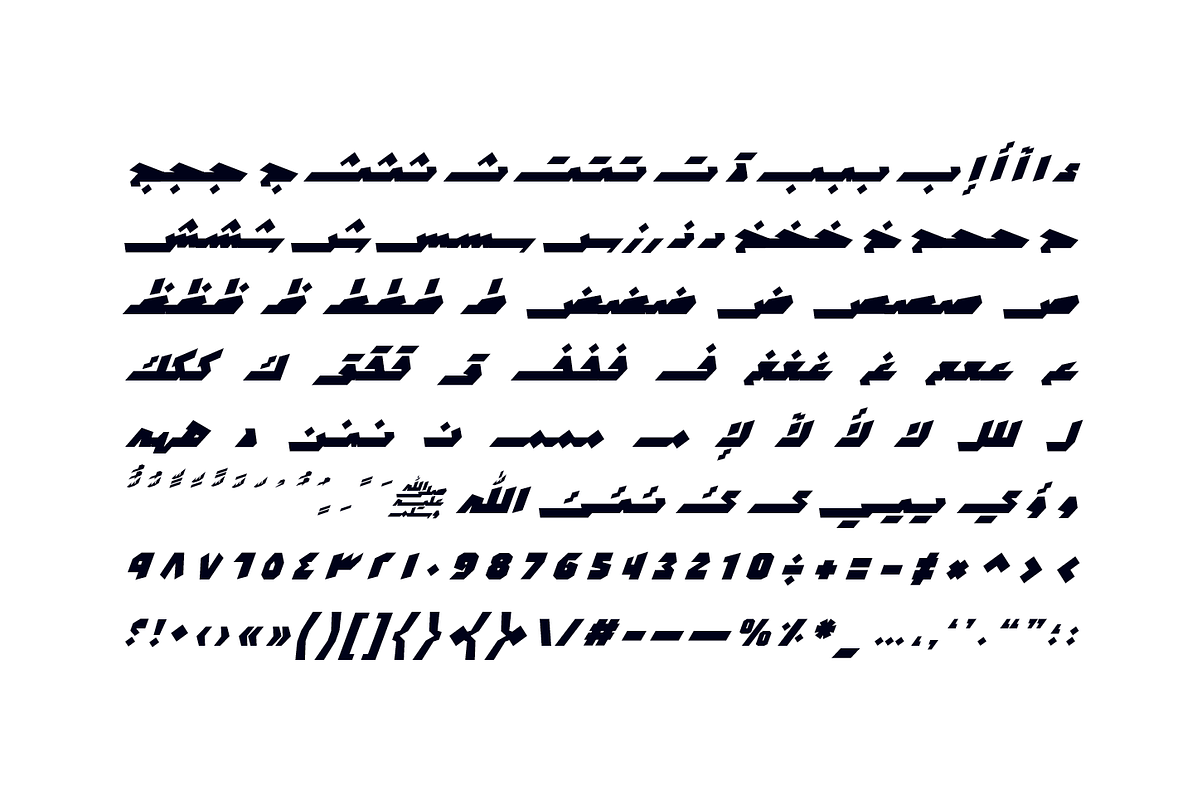 ء ا أ آ أ إ ب ببب ة ت تتت ث ثثث ج ججج
ح ححح خ خخخ د ذ ر ز س سسس ش ششش
ص صصص ض ضضض ط ططط ظ ظظظ
ع ععع غ غغغ ف ففف ق ققق ك ككك
ل للل لا لأ لآ لإ م ممم ن ننن ه ههه
و ؤ ي ييي ى ئ ئئئ الله ﷺ
< > ^ × ≠ - = + ÷ 0 1 2 3 4 5 6 7 8 9 ٠ ١ ٢ ٣ ٤ ٥ ٦ ٧ ٨ ٩
: ؛ ” “ . ’ ‘ , ، … _ * ٪ % — – - # / \ { } [ ] ( ) » « › ‹ ! ؟